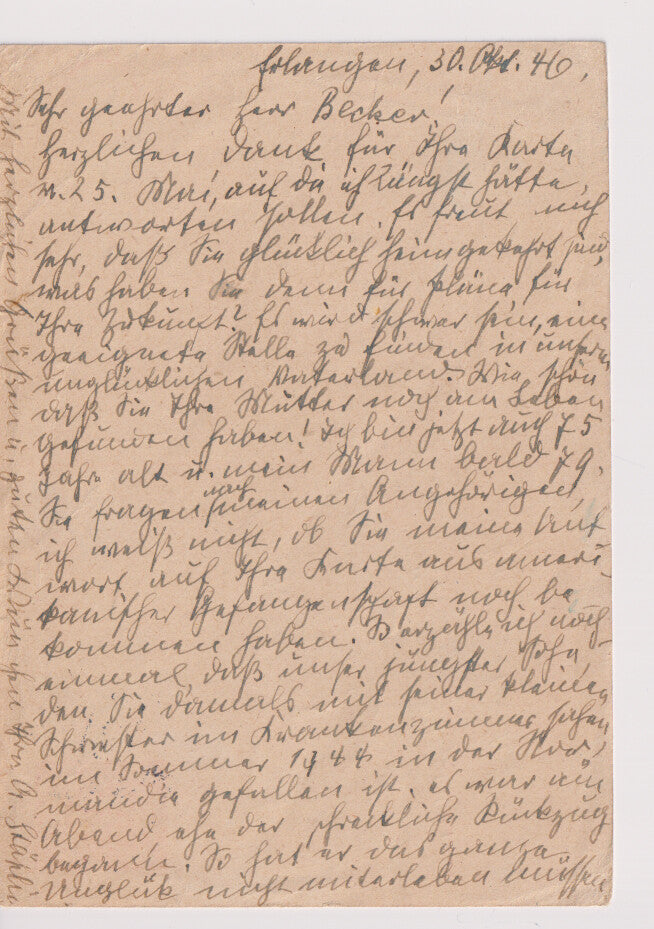 Erlangen, 30. Okt. 46,
Sehr geehrter Herr Becker!
Herzlichen Dank für Ihre Karte
v. 25. Mai, auf die ich längst hätte
antworten sollen. Es freut mich
sehr, daß Sie glücklich heimgekehrt sind,
was haben Sie denn für Pläne für
Ihre Zukunft? Es wird schwer sein, eine
geeignete Stelle zu finden in unserm
unglücklichen Vaterland. Wie schön
daß Sie Ihre Mutter noch am Leben
gefunden haben! Ich bin jetzt auch 75
Jahre alt u. mein Mann bald 79.
Sie fragen nach meinen Angehörigen,
ich weiß nicht, ob Sie meine Ant
wort auf Ihre Karte aus ameri-
kanischer Gefangenschaft noch be
kommen haben. So erzähle ich noch
einmal, daß unser jüngster Sohn,
den Sie damals mit seiner kleinen
Schwester im Krankenzimmer sahen
im Sommer 1944 in der Nor-
mandie gefallen ist. es war am
Abend ehe der schreckliche Rückzug
begann. So hat er das ganze
Unglük nicht miterleben müssen
Mit herzlichen Grüßen u. guten Wünschen Ihre